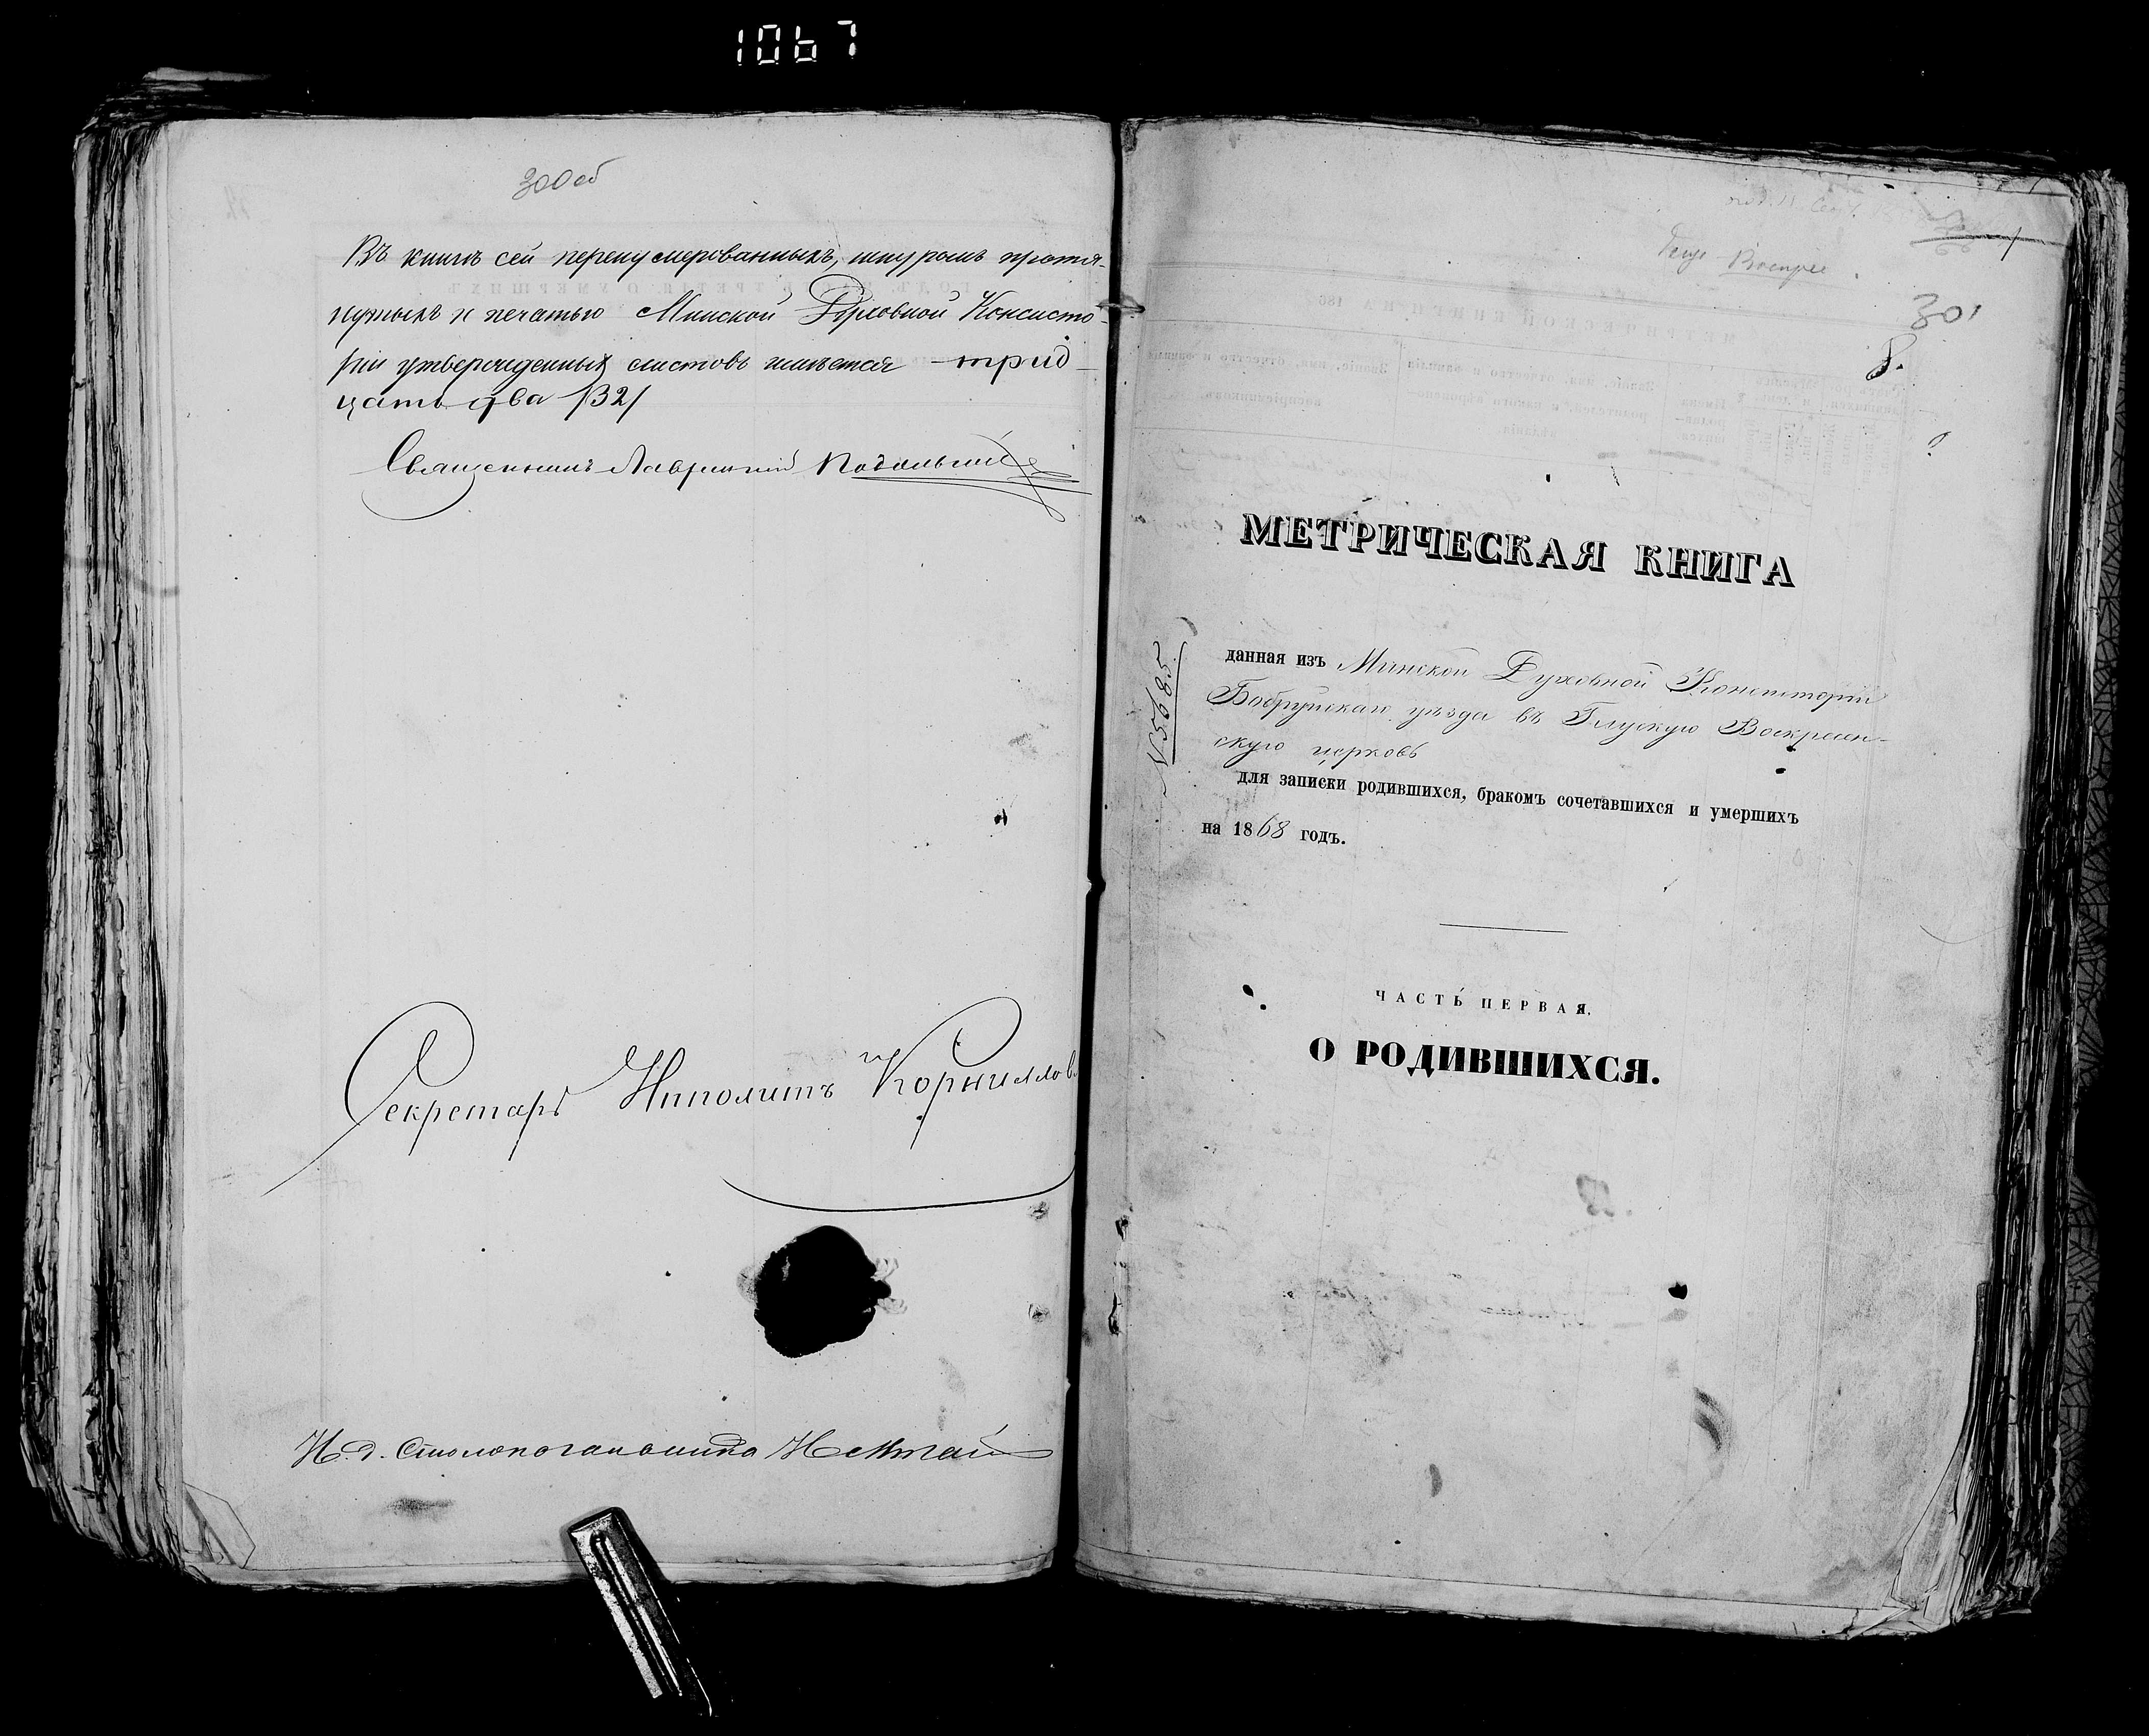 1067
300 об
Въ книгѣ сей перенумерованныхъ, шнуромъ протя-
нутыхъ и печатью Минской Духовной Консисто-
ріи утвержденныхъ листовъ имѣется - трид-
цать два /32/
Священникъ Лаврентій
Секретарь Ипполитъ Корниллов
И. д. Столоначальника
301
8.
МЕТРИЧЕСКАЯ КНИГА
№ 5685.
данная изъ Минской Духовной Консисторіи
Бобруйскаго уѣзда въ Глускую Воскресен-
скую церковь
для записки родившихся, бракомъ сочетавшихся и умершихъ
на 1868 годъ.
ЧАСТЬ ПЕРВАЯ.
О РОДИВШИХСЯ.